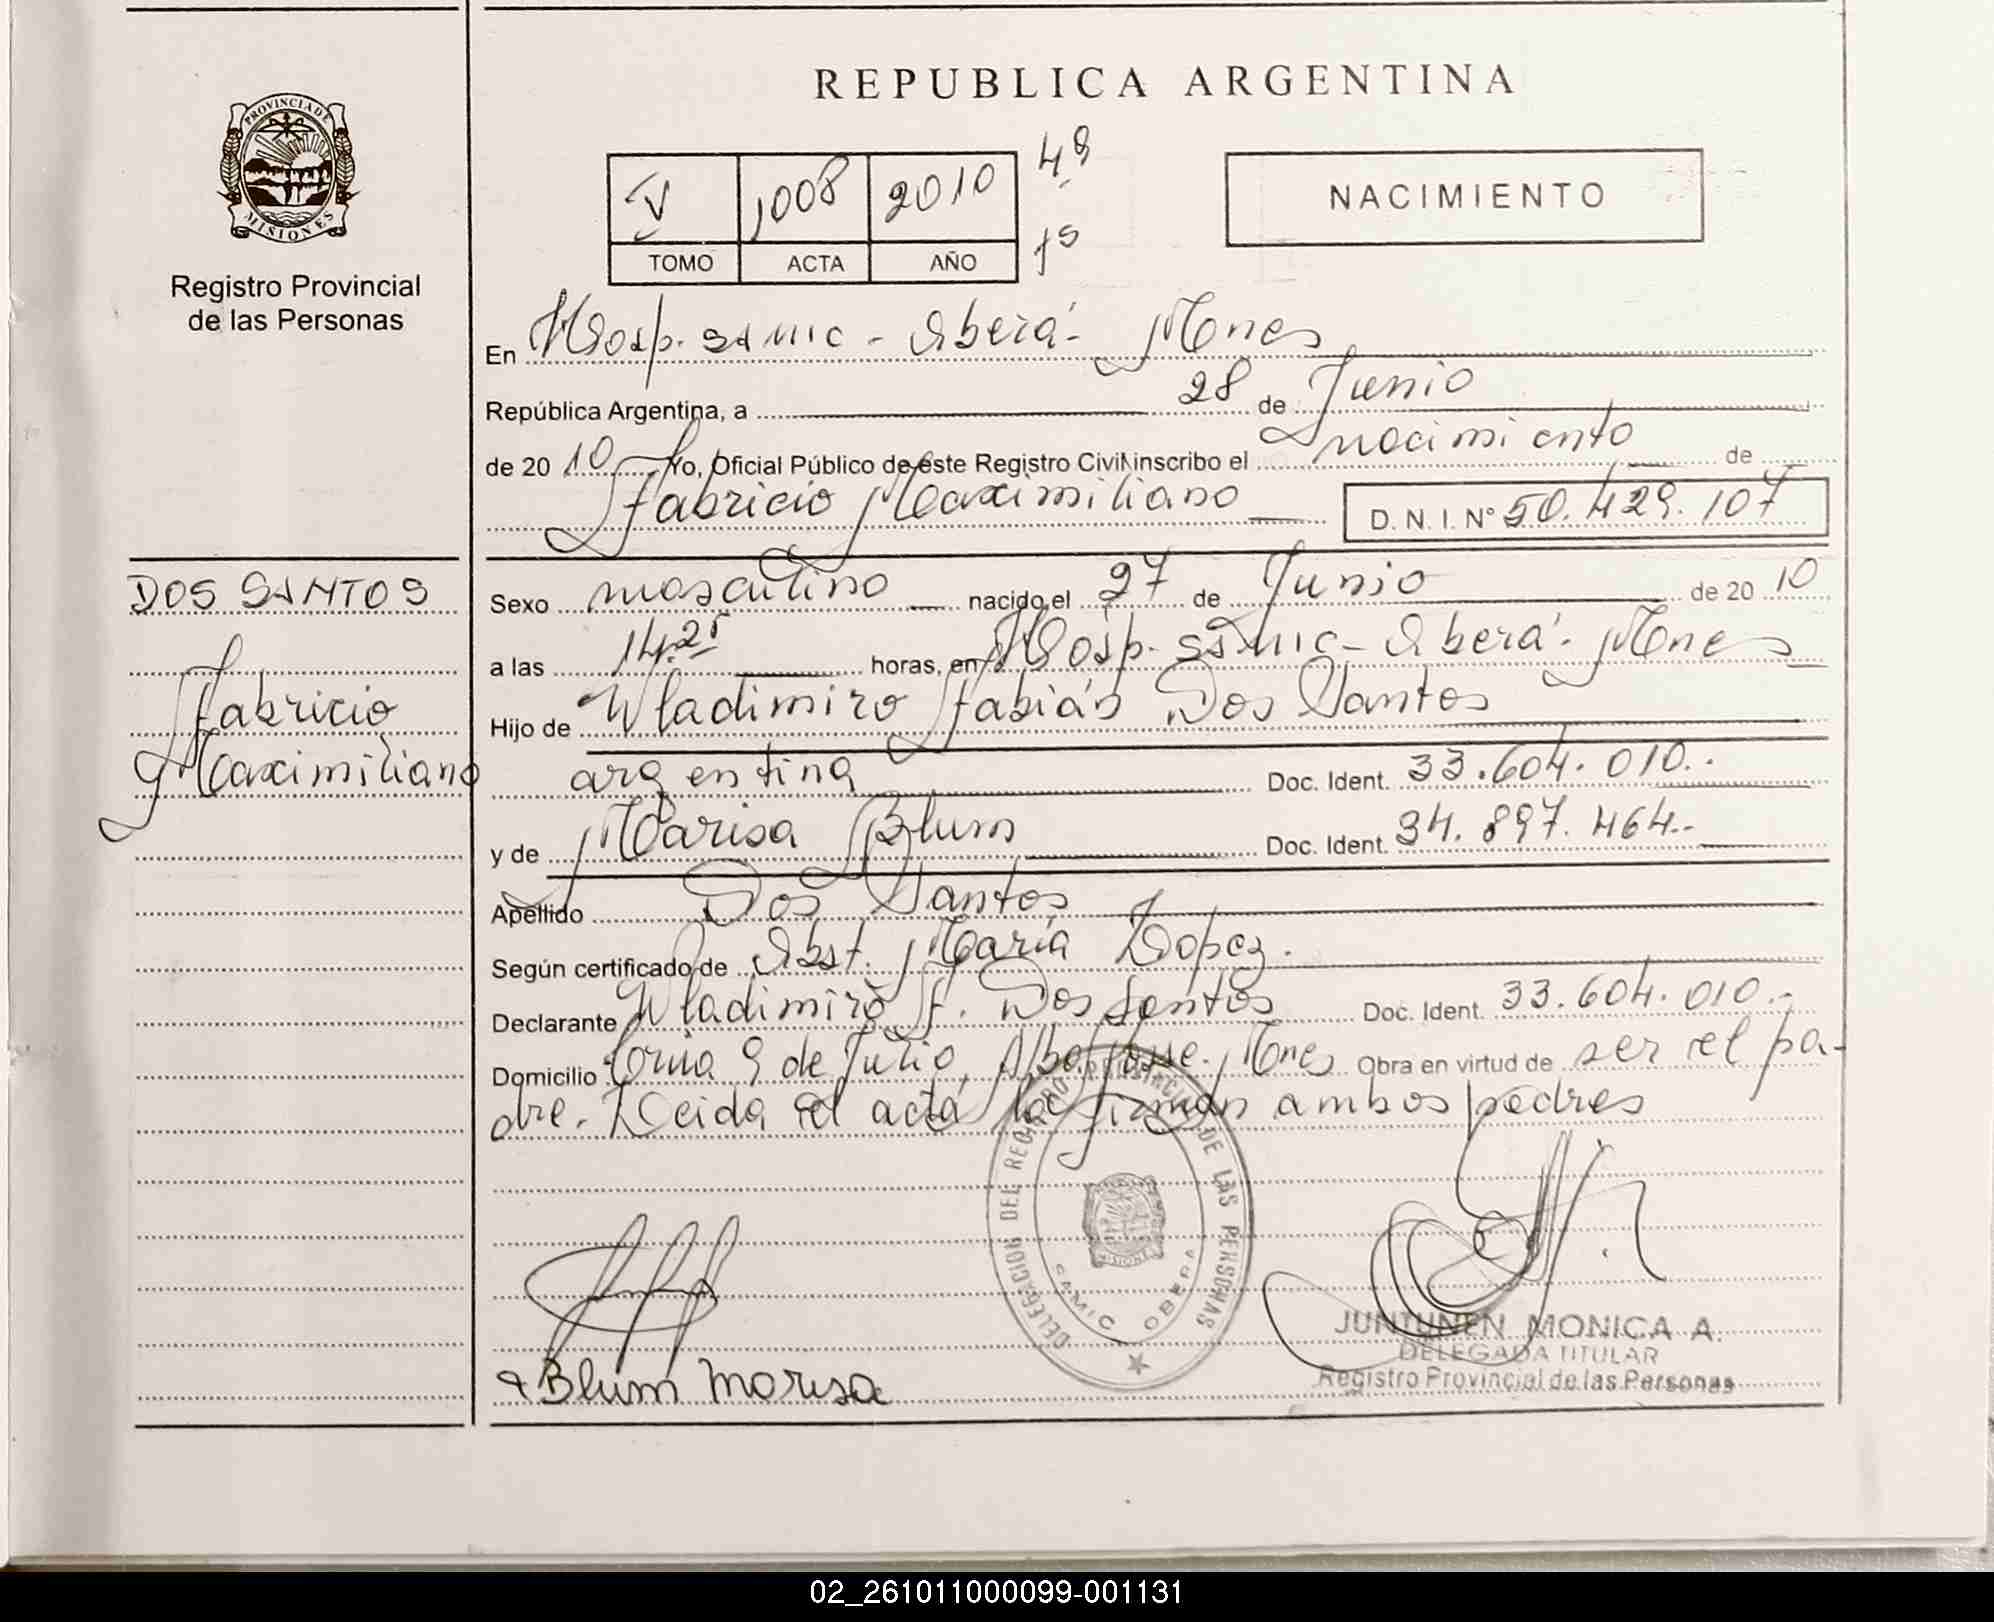 REPUBLICA ARGENTINA
PROVINCIA DE
MISIONES
Registro Provincial
de las Personas
V 1008 2010
TOMO ACTA AÑO
NACIMIENTO
En Hosp. SAMIC - Oberá - Mnes
República Argentina, a 28 de Junio
de 20 10 Yo, Oficial Público de este Registro Civil inscribo el nacimiento de
Fabricio Maximiliano D.N.I. Nº 50.429.107
DOS SANTOS
Fabricio
Maximiliano
Sexo masculino nacido el 27 de Junio de 20 10
a las 14.25 horas, en Hosp. SAMIC - Oberá - Mnes
Hijo de Wladimiro Fabián Dos Santos
argentina Doc. Ident. 33.604.010..
y de Marisa Blum Doc. Ident. 34.897.464..
Apellido Dos Santos
Según certificado de Obst. María Lopez.
Declarante Wladimiro F. Dos Santos Doc. Ident. 33.604.010.-
Domicilio 9 de Julio, Mnes Obra en virtud de ser el pa-
dre. Leida el acta la firman ambos padres
DELEGACION DEL REGISTRO PROVINCIAL DE LAS PERSONAS
SAMIC OBERA
MISIONES
Blum Marisa
JUNTUNEN MONICA A.
DELEGADA TITULAR
Registro Provincial de las Personas
02_261011000099-001131